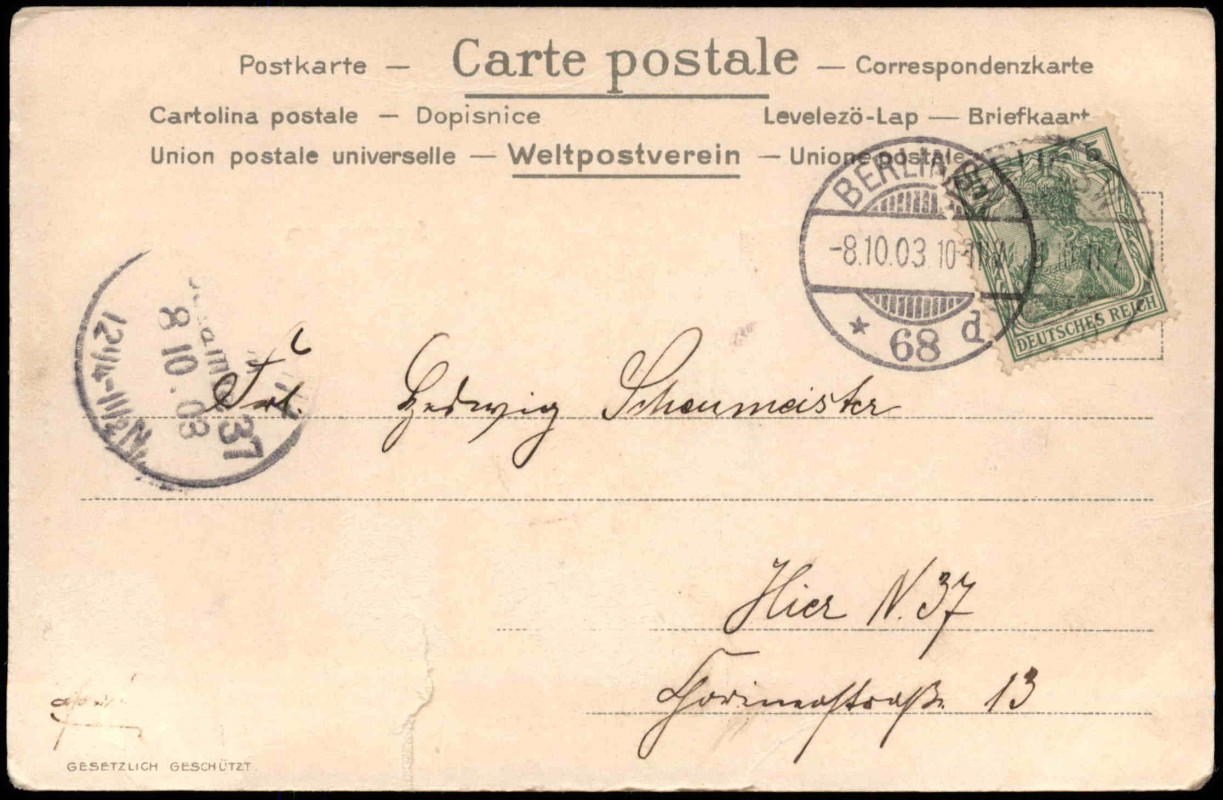 Postkarte — Carte postale — Correspondenzkarte
Cartolina postale — Dopisnice Levelezö-Lap — Briefkaart
Union postale universelle — Weltpostverein — Unione postale
BERLIN S.W.
-8.10.03 10-11
* 68 d
5
DEUTSCHES REICH
8 10. 03
12¼-1½N
37
Frl. Hedwig Scheumeister
Hier N. 37
13
GESETZLICH GESCHÜTZT.